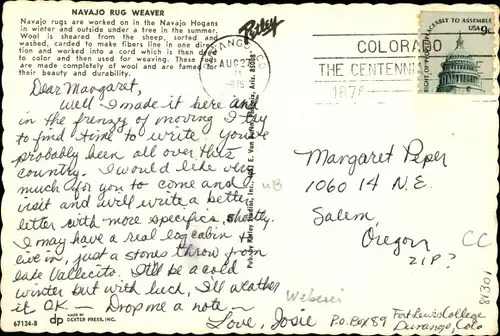 NAVAJO RUG WEAVER
Navajo rugs are worked on in the Navajo Hogans
in winter and outside under a tree in the summer.
Wool is sheared from the sheep, sorted and
washed, carded to make fibers line in one direc-
tion and worked into a cord which is then
to color and then used for weaving. These rugs
are made completely of wool and are famed for
their beauty and durability.
Petley
AUG 22
1976
COLORADO
THE CENTENNI
1876
PEACEABLY TO ASSEMBLE
USA 9c
Dear Margaret,
Well I made it here and
in the frenzy of moving I try
to find time to write. You've
probably been all over this
country. I would like very
much for you to come and
visit and will write a better
letter with more specifics, shortly.
I may have a real log cabin to
live in, just a stones throw from
Lake Vallecito. It'll be a cold
winter but with luck, I'll weather
it OK — Drop me a note —
Love, Josie
P.O. Box 89
Fort Lewis College
Durango, Colo
81301
Margaret Peper
1060 14 N.E.
Salem,
Oregon
ZIP?
CC
uB
67134-B
dp
MADE BY
DEXTER PRESS, INC.